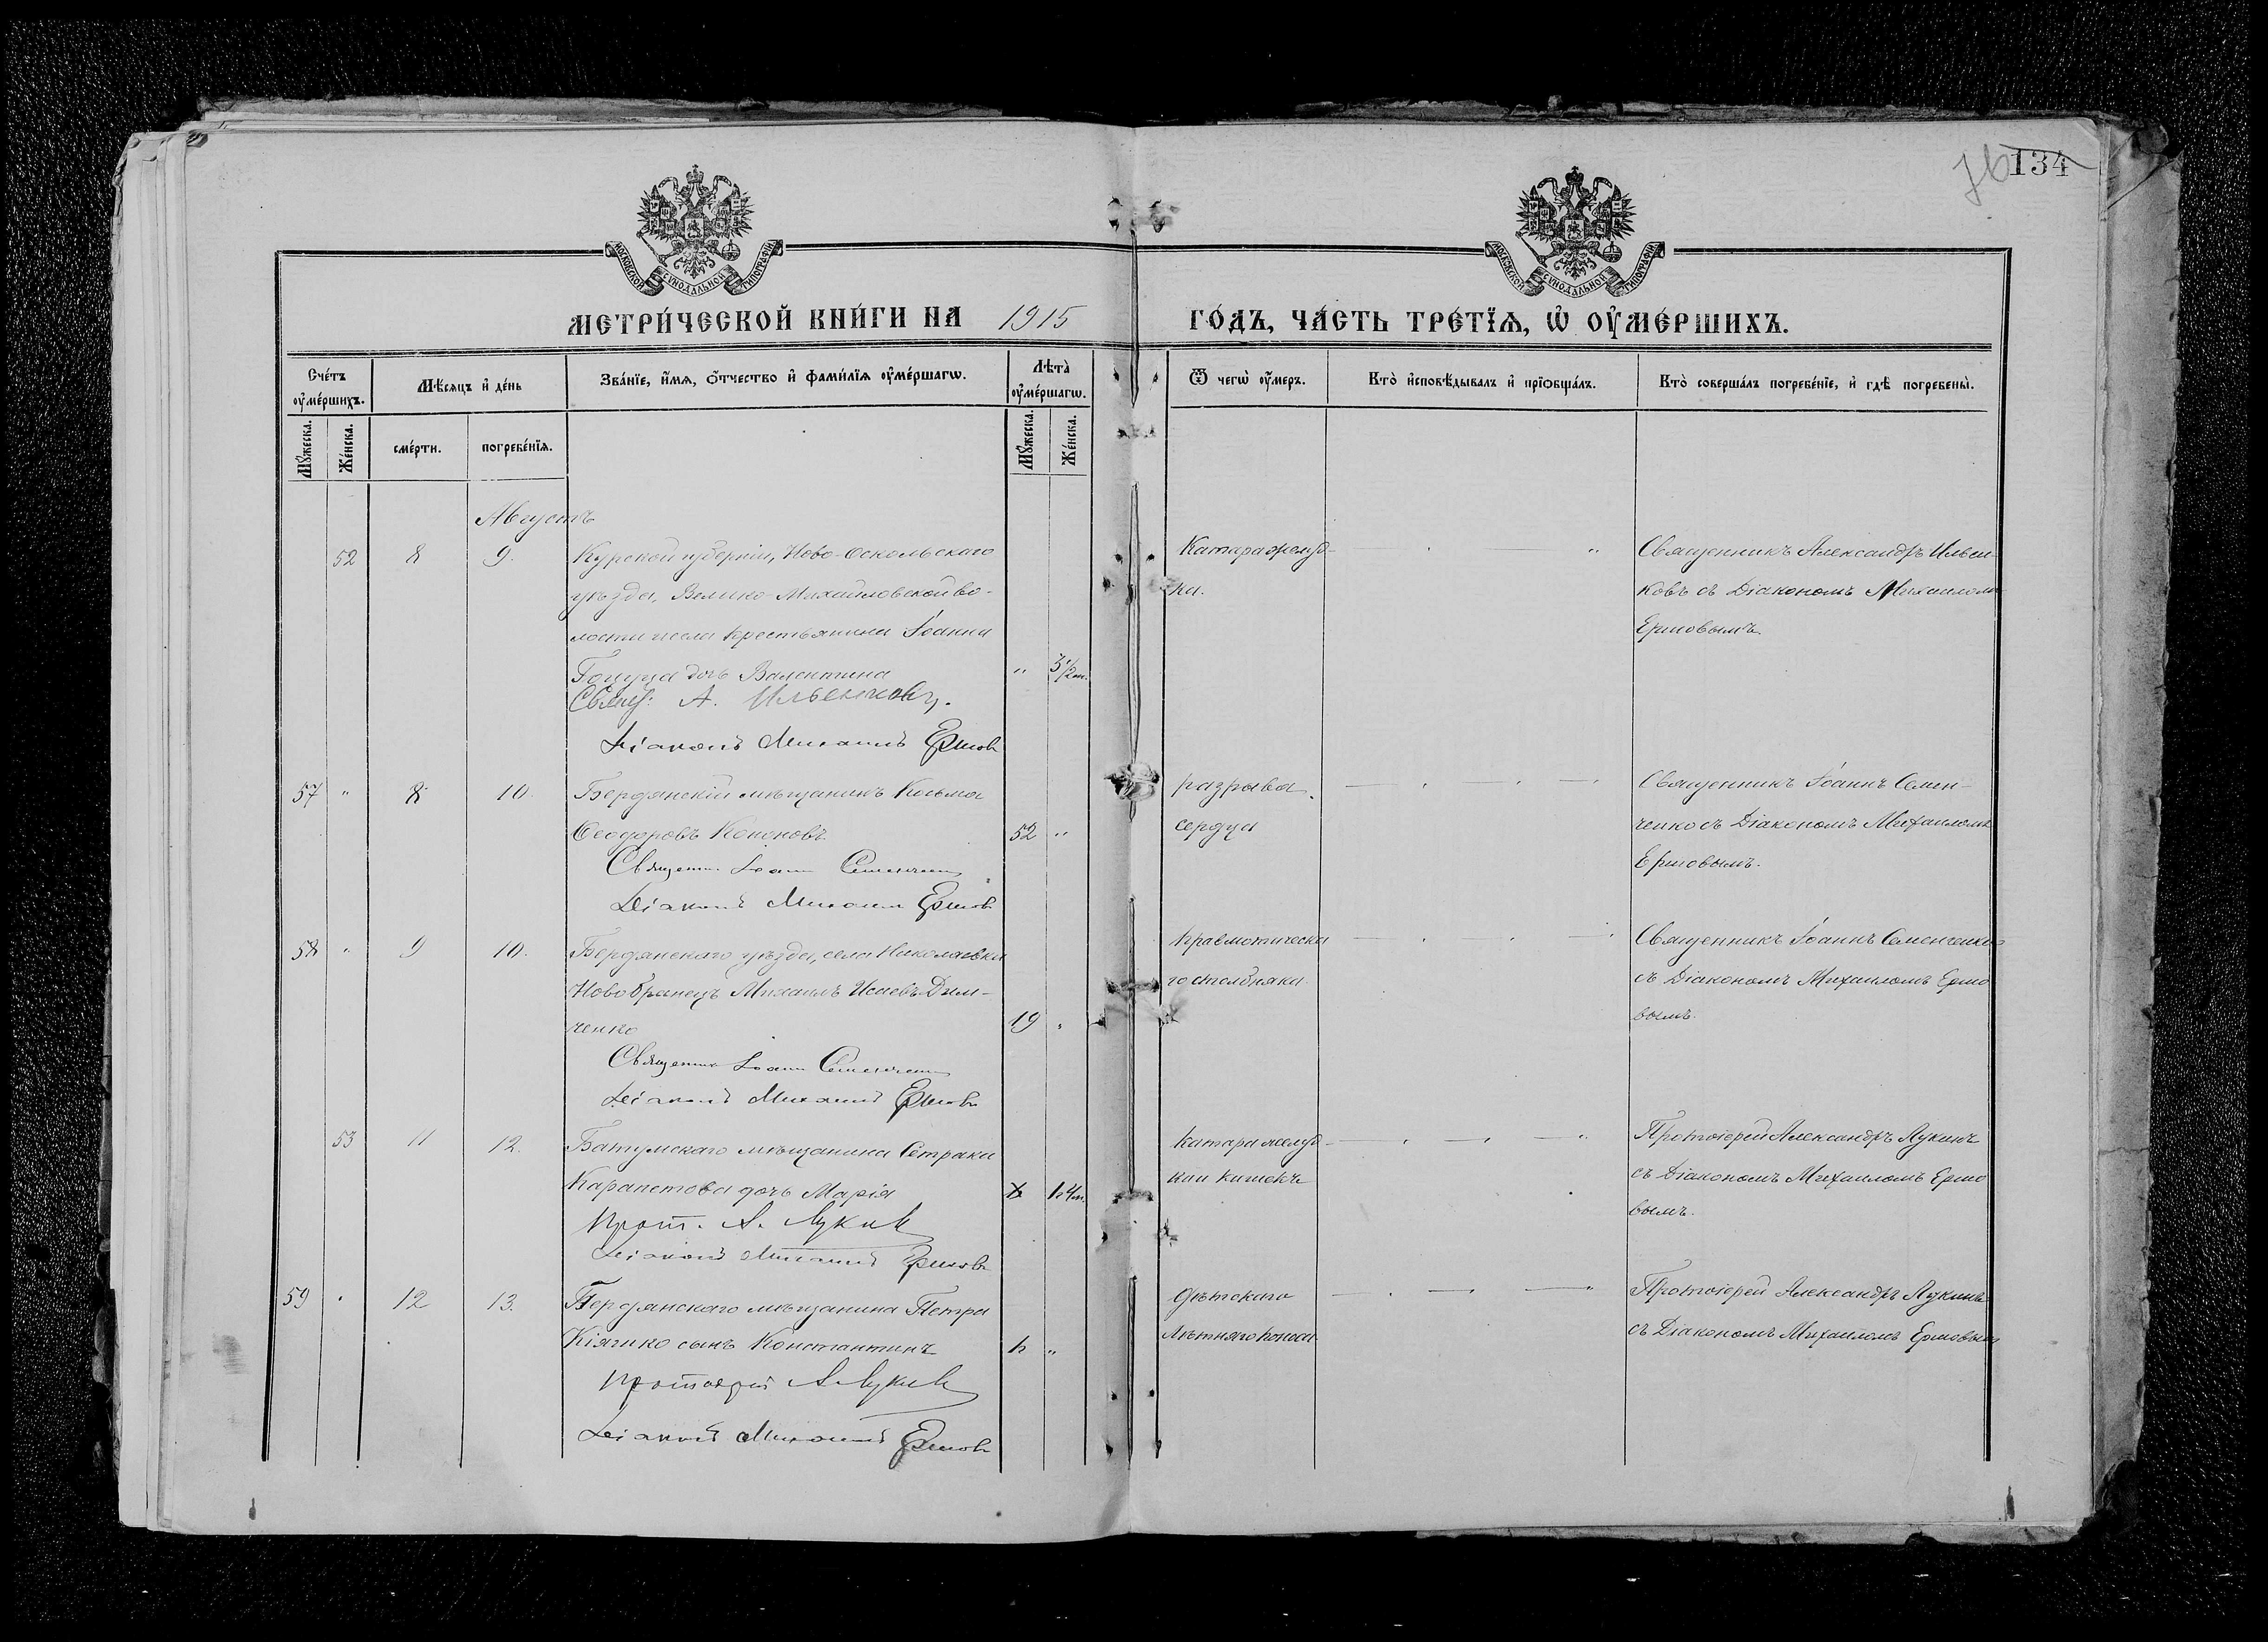 134
МОСКОВСКОЙ СѴНОДАЛЬНОЙ ТИПОГРАФІИ
МОСКОВСКОЙ СѴНОДАЛЬНОЙ ТИПОГРАФІИ
МЕТРИ́ЧЕСКОЙ КНИ́ГИ НА 1915 ГО́ДЪ, ЧА́СТЬ ТРЕ́ТЇѦ, Ѡ҆ ОУ҆МЕ́РШИХЪ.
Сче́тъ оу҆ме́ршихъ.
Мѣ́сѧцъ и҆ де́нь
Зва́нїе, и҆́мѧ, ѻ҆́тчество и҆ фами́лїѧ оу҆ме́ршагѡ.
Лѣта̀ оу҆ме́ршагѡ.
Ѿ чегѡ̀ оу҆́меръ.
Кто̀ и҆сповѣ́дывалъ и҆ прїѡбща́лъ.
Кто̀ соверша́лъ погребе́нїе, и҆ гдѣ̀ погребены̀.
Мꙋ́жеска.
Же́нска.
сме́рти.
погребе́нїѧ.
Мꙋ́жеска.
Же́нска.
Августъ
52 8 9. Курской губерніи, Ново-Оскольского
уѣзда, Велико-Михайловской во-
лости и села крестьянина Іоанна
дочь Валентина " 3½ м.
Свящ: А. Ильенковъ.
Діаконъ Михаилъ Ершовъ
Катара желуд-
ка.
Священникъ Александръ Ильен-
ковъ съ Діакономъ Михаиломъ
Ершовымъ.
57 " 8 10. Бердянскій мѣщанинъ Косьма
Ѳеодоровъ Кононовъ 52 "
Священник Іоанн Семенченко
Діаконъ Михаил Ершовъ
разрыва
сердца
Священникъ Іоаннъ Семен-
ченко съ Діакономъ Михаиломъ
Ершовымъ.
58 " 9 10. Бердянскаго уѣзда, села Николаевки
Новобранецъ Михаилъ Исаевъ Дим-
ченко 19 "
Священник Іоанн Семенченко
Діаконъ Михаилъ Ершовъ
травмотическа
го столбняка
Священникъ Іоаннъ Семенченко
съ Діакономъ Михаиломъ Ершо
вымъ.
53 11 12. Батумскаго мѣщанина Сетрака
Карапетова дочь Марія
Прот. А. Лукинъ
Діаконъ Михаилъ Ершовъ
Катара желуд-
ка и кишекъ
Протоіерей Александръ Лукинъ
съ Діакономъ Михаиломъ Ершо
вымъ.
59 " 12 13. Бердянскаго мѣщанина Петра
Кіяшко сынъ Константинъ
Протоіерей А. Лукинъ
Діаконъ Михаилъ Ершовъ
дѣтскаго
лѣтняго поноса
Протоіерей Александръ Лукинъ
съ Діакономъ Михаиломъ Ершовымъ